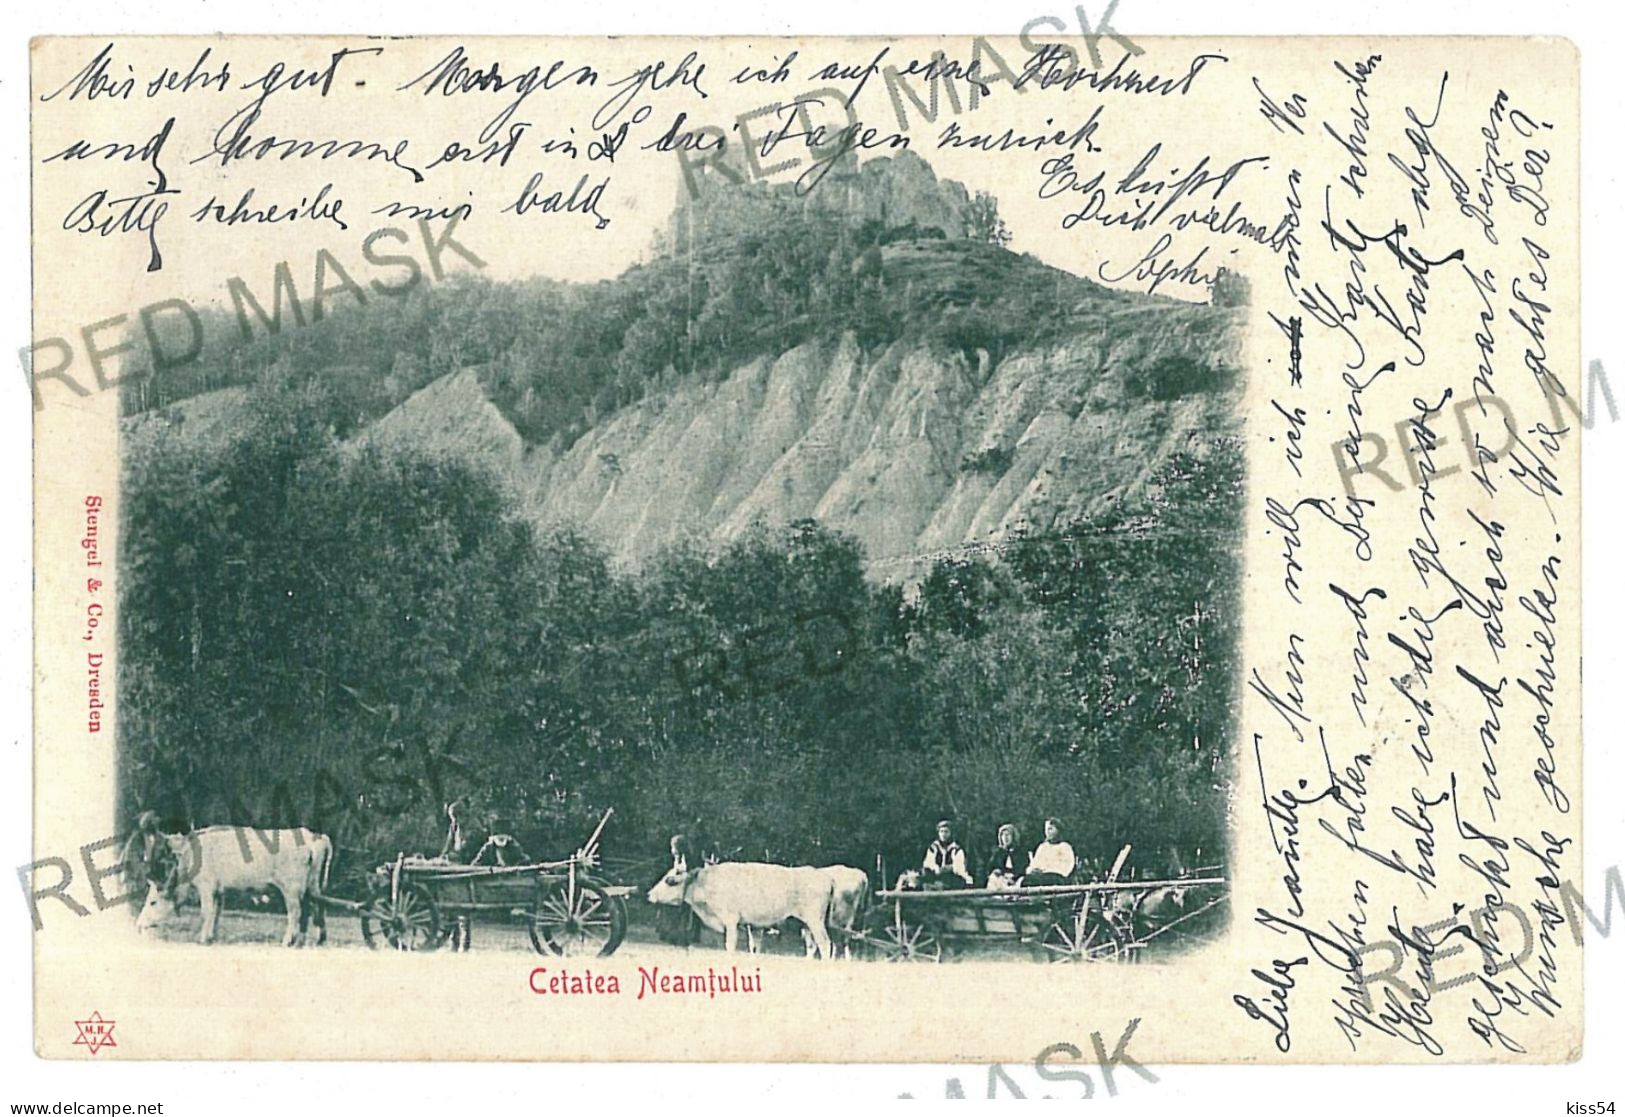 Mir sehr gut. Morgen gehe ich auf eine Hochzeit
und komme erst in drei Tagen zurück.
Bitte schreibe mir bald.
Es küßt
Dich vielmals
Sophie
Liebe Jeanette. Nun will ich mein Ver
sprechen halten und Dir eine Karte schreiben
Heute habe ich die gewisse Karte abge
schickt und auch so nach Deinem
Wunsche geschrieben. Wie geht es Dir?
Stengel & Co., Dresden
Cetatea Neamțului
M.R.
J.
RED MASK
RED MASK
RED MASK
RED M
RED
RED MASK
RED M
MASK
delcampe.net
kiss54